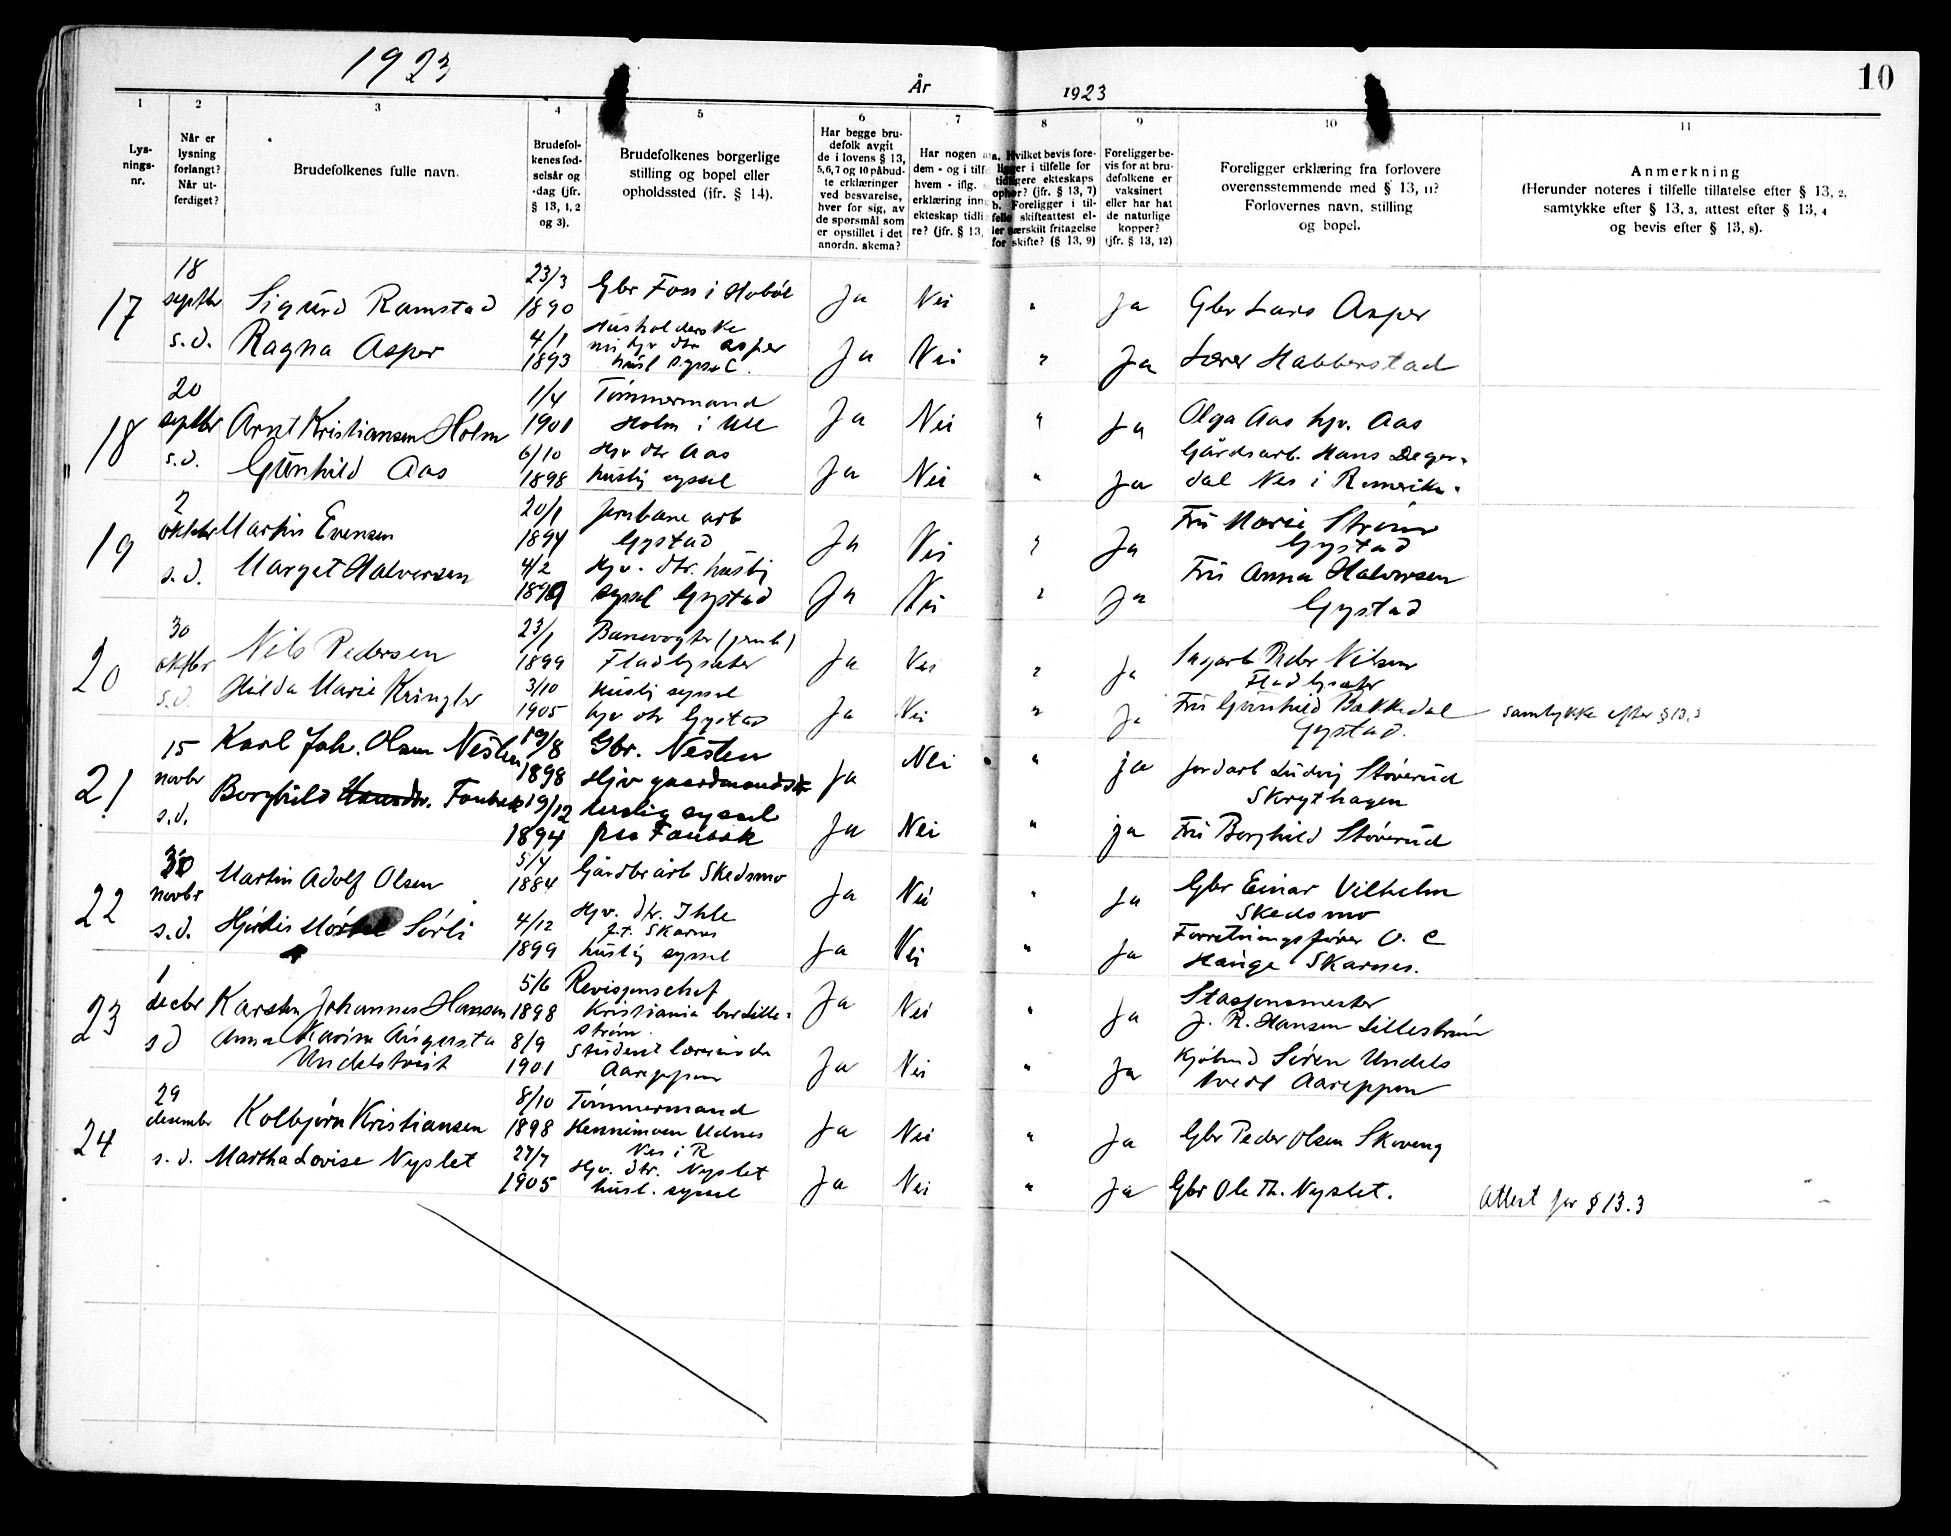 1923
År
1923
10
1
2
3
4
5
6
7
8
9
10
11
Lys-
nings-
nr.
Når er
lysning
forlangt?
Når ut-
ferdiget?
Brudefolkenes fulle navn.
Brudefol-
kenes fød-
selsår og
-dag (jfr.
§ 13, 1, 2
og 3).
Brudefolkenes borgerlige
stilling og bopel eller
opholdssted (ifr. § 14).
Har begge bru-
defolk avgit
de i lovens § 13,
5, 6, 7 og 10 påbud-
te erklæringer
ved besvarelse,
hver for sig, av
de spørsmål som
er opstillet i det
anordn. skema?
Har nogen
dem - og i tilf
hvem - iflg.
erklæring inn
ekteskap tidli
re? (jfr. § 13,
a. Hvilket bevis fore-
ligger i tilfelle for
tidligere ekteskaps
ophør? (jfr. § 13, 7)
b. Foreligger i til-
felle skifteattest el-
ler særskilt fritagelse
for skifte? (§ 13, 9)
Foreligger be-
vis for at bru-
defolkene er
vaksinert
eller har hat
de naturlige
kopper?
(jfr. § 13, 12)
Foreligger erklæring fra forlovere
overensstemmende med § 13, 11?
Forlovernes navn, stilling
og bopel.
Anmerkning
(Herunder noteres i tilfelle tillatelse efter § 13, 2,
samtykke efter § 13, 3, attest efter § 13, 4
og bevis efter § 13, 8).
17
18 septbr
Sigurd Ramstad
23/3 1890
Gbr Foss i Hobøl
Ja Nei " Ja
Gbr Lars Asper
s.d.
Ragna Asper
4/1 1893
Husholderske
hjv dtr Asper
husl syssel
Ja Nei " Ja
Lærer Habberstad
18
20 septbr
Arnt Kristiansen Holm
1/4 1901
Tømmermand
Holm i Ull
Ja Nei " Ja
Olga Aas hjv. Aas
s.d.
Gunhild Aas
6/10 1898
Hjv dtr Aas
huslig syssel
Ja Nei " Ja
Gårdsarb. Hans Deger-
dal Nes i Romerike.
19
2 oktbr
Martin Evensen
20/1 1894
Jernbane arb
Gystad
Ja Nei " Ja
Fru Marie Strøm
Gystad
s.d.
Marget Halversen
4/2
Hjv. dtr. huslig
syssel Gystad
Ja Nei " Ja
Fru Anna Halversen
Gystad
20
30 oktbr
Nils Pedersen
23/1 1899
Banevogter (jernb)
Fladbysæter
Ja Nei " Ja
Sagarb Peder Nilsen
Fladbysæter
s.d.
Hilda Marie Kringler
3/10 1905
huslig syssel
hjv dtr Gystad
Ja Nei " Ja
Fru Gunhild Bakkedal
Gystad.
samtykke efter § 13.3
21
15 novbr
Karl Joh. Olsen Nesten
19/8 1898
Gbr. Nesten
Ja Nei " ja
Jordarb Ludvig Støverud
Skrythagen
s.d.
Borghild Hansdtr. Fonbæk
19/12 1894
Hjv gaardmandsdtr
huslig syssel
paa Fonbæk
Ja Nei " ja
Fru Borghild Støverud
22
30 novbr
Martin Adolf Olsen
5/4 1884
Gårdbr arb Skedsmo
Ja Nei " Ja
Gbr Einar Vilhelm
Skedsmo
s.d.
Hjørdis Sørli
4/12 1899
Hjv. dtr. Ihle
f.t. Skarnes
huslig syssel
Ja Nei " Ja
Forretningsfører O. C
Hauge Skarnes.
23
1 decbr
Karsten Johannes Hansen
5/6 1898
Revisjonschef
Kristiania bor Lille-
strøm.
Ja Nei " Ja
Stasjonsmester
J. R. Hansen Lillestrøm
s d
Anna Karine Augusta
Undelstveit
8/9 1901
Student lærerinde
Aareppen
Ja Nei " Ja
Kjøbmd Søren Undels
tveit Aareppen
24
29 desember
Kolbjørn Kristiansen
8/10 1898
Tømmermand
Hennimoen Udnes
Nes i R
Ja Nei " Ja
Gbr Peder Olsen Skoveng
s.d.
Martha Lovise Nyslet
27/7 1905
Hjv. dtr. Nyslet
husl. syssel
Ja Nei " Ja
Gbr Ole Th. Nyslet.
Attest for § 13.3